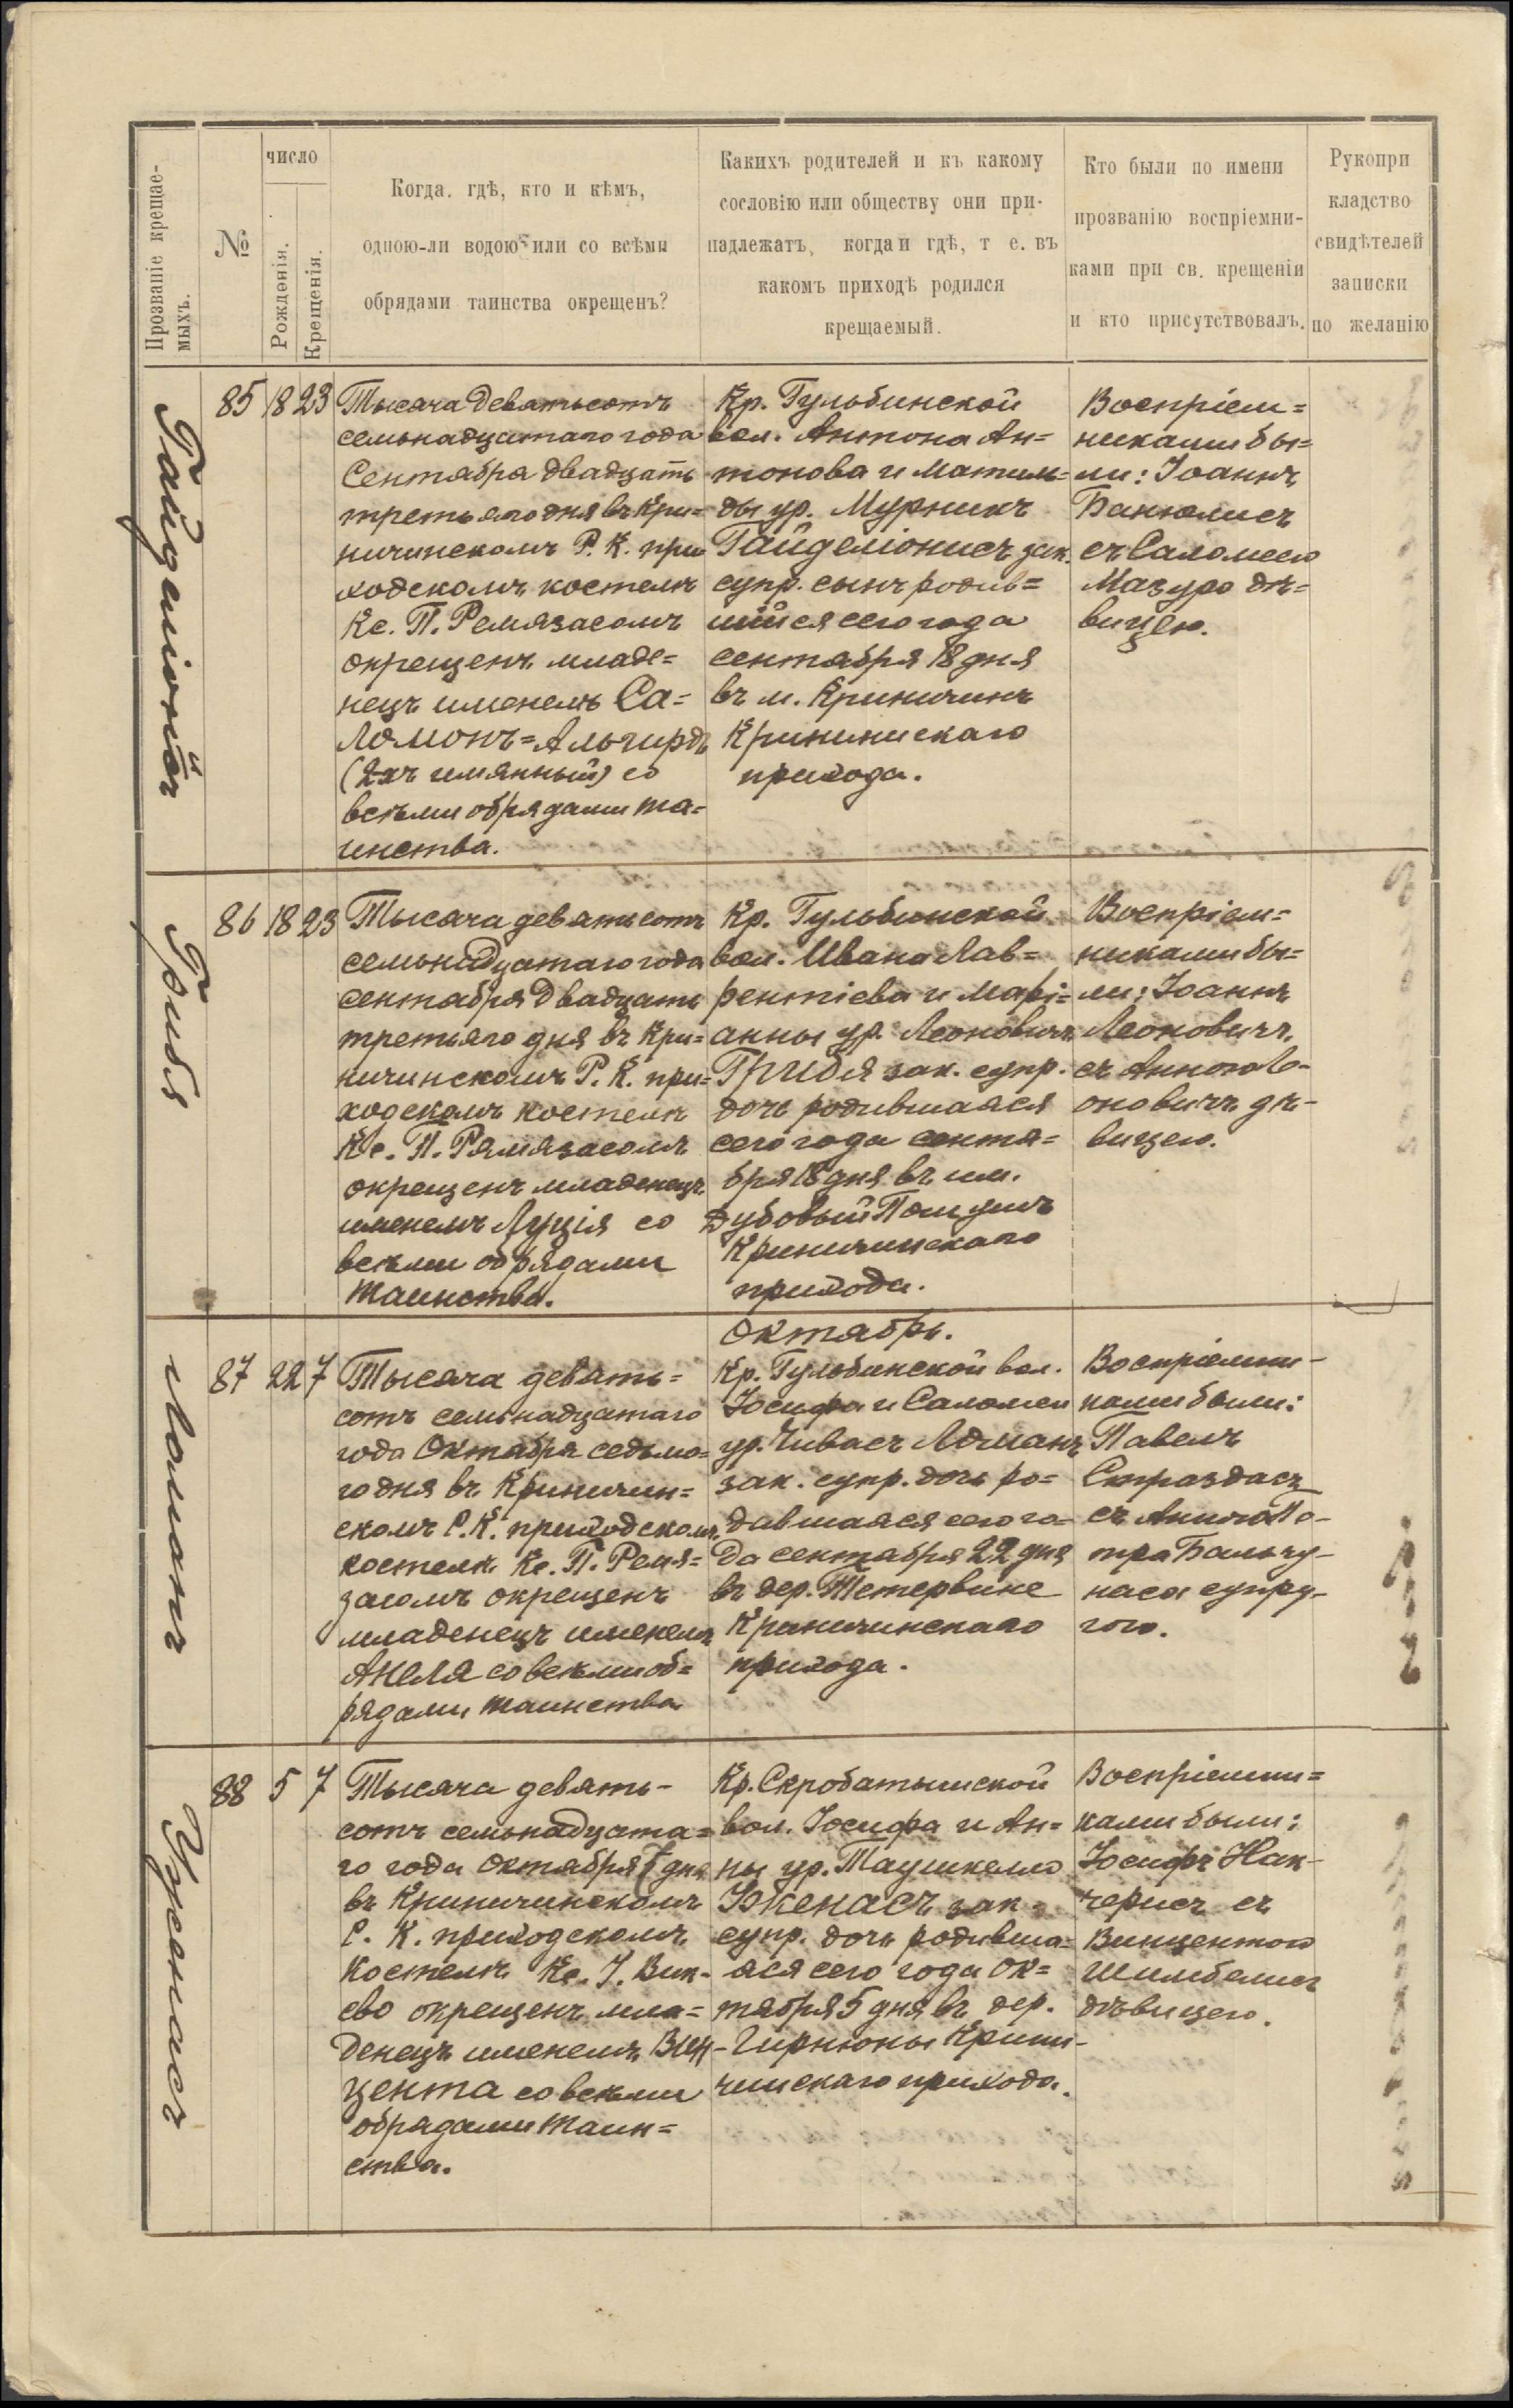 Прозваніе крещае-
мыхъ.
№
число
Рожденія.
Крещенія.
Когда. гдѣ, кто и кѣмъ,
одною-ли водою или со всѣми
обрядами таинства окрещенъ?
Какихъ родителей и къ какому
сословію или обществу они при-
надлежатъ, когда и гдѣ, т е. въ
какомъ приходѣ родился
крещаемый.
Кто были по имени
прозванію воспріемни-
ками при св. крещеніи
и кто присутствовалъ.
Рукопри
кладство
свидѣтелей
записки
по желанію
85 18 23
Тысяча девятьсотъ
семьнадцатаго года
Сентября двадцать
третьяго дня въ Кри=
ничинскомъ Р. К. при
ходскомъ костелѣ
Кс. П. Ремязасомъ
окрещенъ младе=
нецъ именемъ Са=
ломонъ=Альгирдъ
(2хъ имянный) со
всѣми обрядами та=
инства.
Кр. Гульбинской
вол. Антона Ан=
тонова и Матиль=
ды ур. Мурникъ
Гайделіонисъ зак.
супр. сынъ родив=
шійся сего года
сентября 18 дня
въ м. Криничинъ
Крининискаго
прихода.
Воспріем=
никами бы=
ли: Іоаннъ
Банюлисъ
съ Саломеею
Мазуро дѣ=
вицею.
Грибя
86 18 23
Тысяча девятьсотъ
семьнадцатаго года
сентября двадцать
третьяго дня въ Кри=
ничинскомъ Р. К. при=
ходскомъ костелѣ
Кс. П. Рямязасомъ
окрещенъ младенецъ
именемъ Луція со
всѣми обрядами
таинства.
Кр. Гульбинской
вол. Ивана Лав=
рентіева и Марі=
анны ур. Леоновичъ
Грибя зак. супр.
дочь родившаяся
сего года сентя=
бря 18 дня въ им.
Дубовый
Криничинскаго
прихода.
Воспріем=
никами бы=
ли: Іоаннъ
Леоновичъ
съ Анною Ле-
оновичъ дѣ-
вицею.
Октябрь.
Ломанъ
87 22 7
Тысяча девять=
сотъ семьнадцатаго
года Октября седьмо=
го дня въ Криничин=
скомъ Р. К. приходскомъ
костелѣ Кс. П. Ремя=
засомъ окрещенъ
младенецъ именемъ
Анеля со всѣми об=
рядами таинства
Кр. Гульбинской вол.
Іосифа и Саломеи
ур. Чивасъ Ломанъ
зак. супр. дочь ро=
дившаяся сего го=
да сентября 22 дня
въ дер. Тетервине
Криничинскаго
прихода.
Воспріемни-
ками были:
Павелъ
Страздасъ
съ Анною Пе-
тра Бальчу-
наса супру-
гою.
Ужкенасъ
88 5 7
Тысяча девять-
сотъ семьнадцата=
го года Октября 7 дня
въ Криничинскомъ
Р. К. приходскомъ
Костелѣ Кс. І. Вик-
сво окрещенъ мла=
денецъ именемъ Вин-
цента со всѣми
обрядами таин=
ства.
Кр. Скробатышской
вол. Іосифа и Ан=
ны ур. Таушкело
Ужкенасъ зак.
супр. дочь родивша=
яся сего года Ок=
тября 5 дня въ дер.
Гирнюны Крини-
чинскаго прихода.
Воспріемни=
ками были:
Іосифъ Нак-
черисъ съ
Винцентою
Шимбелисъ
дѣвицею.